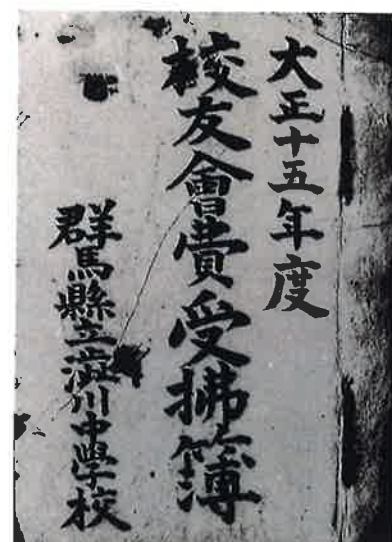 大正十五年度
校友會費受拂簿
群馬縣立澁川中學校